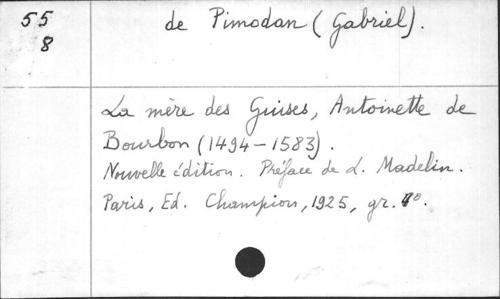 55 de Pimodan (Gabriel).
8
La mère des Guises, Antoinette de
Bourbon (1494-1583).
Nouvelle édition. Préface de L. Madelin.
Paris, Ed. Champion, 1925, gr. 8°.